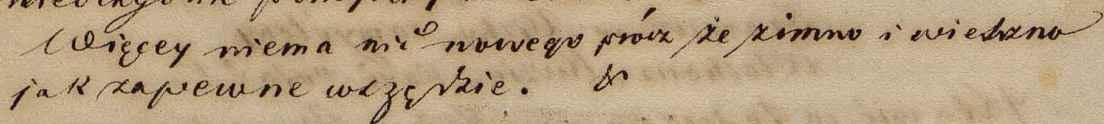 Więcey niema nic nowego prócz że zimno i wietrzno
jak zapewne wszędzie.